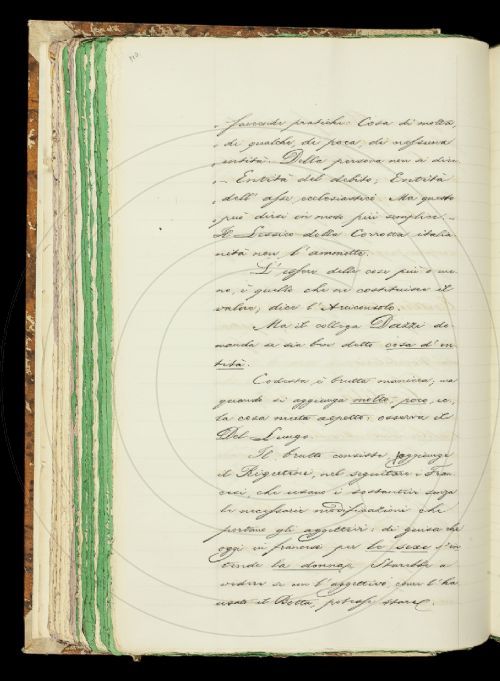 „ faccende pratiche: Cosa di molta,
„ di qualche, di poca, di nessuna
„ entità. Della persona non si dice
„ — Entità del debito; Entità
„ dell'asse ecclesiastico. Ma questo
„ può dirsi in modo più semplice. —
Il Lessico della Corrotta italia
nità non l'ammette.
L'essere delle cose più o me-
no, è quello che ne costituisce il
valore, dice l'Arciconsolo.
Ma il collega Dazzi do-
manda se sia ben detto cosa d'en
tità.
Codesta è brutta maniera; ma
quando si aggiunga molta, poca, ec.,
la cosa muta aspetto: osserva il
Del Lungo.
Il brutto consiste, soggiunge
il Rigutini, nel seguitare i Fran
cesi, che usano i sostantivi senza
le necessarie modificazioni che
portano gli aggettivi: di guisa che
oggi in francese per le sexe s'in
tende la donna. Starebbe a
vedere se un l'aggettivo, come l'ha
usato il Botta, potesse stare.